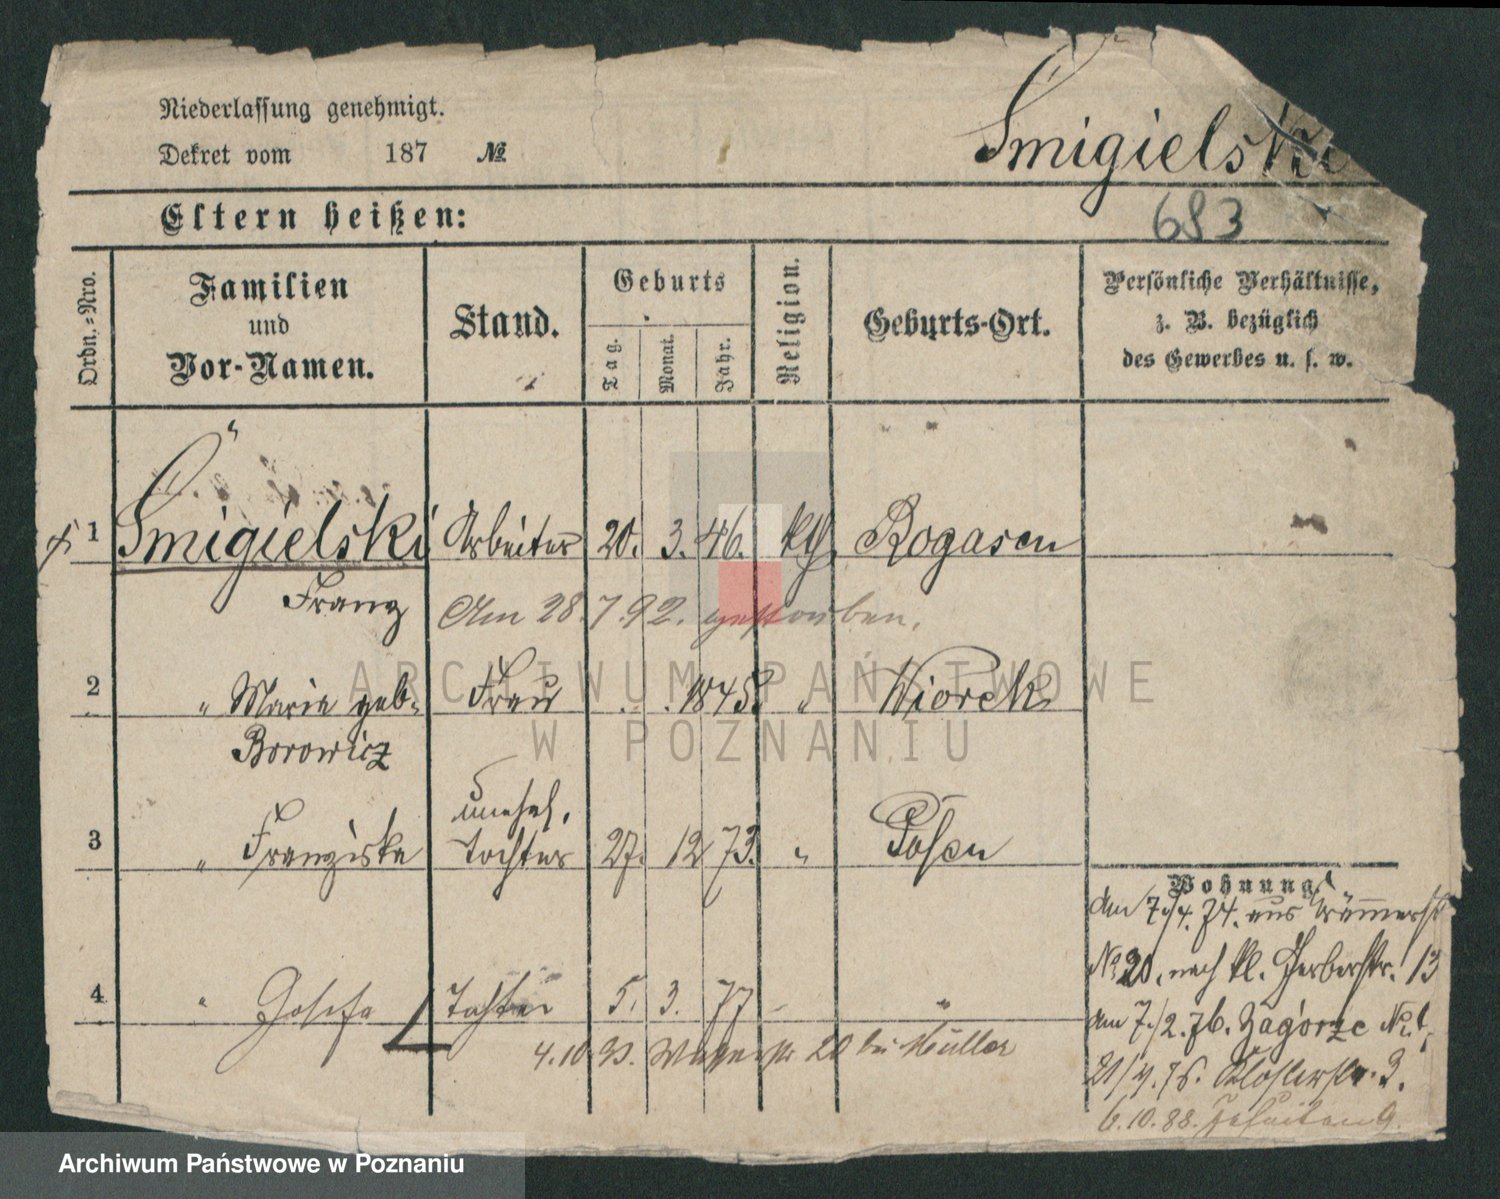 Niederlassung genehmigt.
Dekret vom 187 №
Śmigielski
Eltern heißen:
683
Ordn.-Nro.
Familien und Vor-Namen.
Stand.
Geburts
Tag.
Monat.
Jahr.
Religion.
Geburts-Ort.
Persönliche Verhältnisse,
z. B. bezüglich
des Gewerbes u. s. w.
1 Śmigielski Arbeiter 20. 3. 46. kth. Rogasen
Franz Am 28.7.92. gestorben.
2 " Maria geb. Frau 1845. " Wiorek
Borowicz
unehel.
3 " Franziska Tochter 27. 12 73. " Posen
Wohnung.
den 7/4. 74. aus
№ 20. nach kl. Gerberstr. 13
4 " Josefa Tochter 5. 3. 77 "
den 7/2. 76. Zagórze №
4.10.93. 20 bei Müller
21/4.76. Klosterstr. 3.
6.10.88. Jesuiten 9.
ARCHIWUM PAŃSTWOWE
W POZNANIU
Archiwum Państwowe w Poznaniu